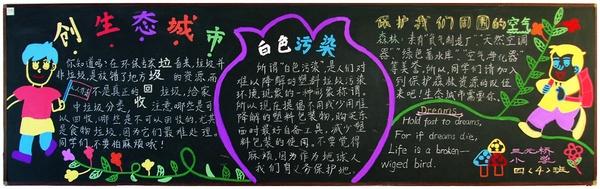 创生态城市
你知道吗？在环保专家看来，垃圾
并非垃圾，是放错了地方的资源，而
不是真正的垃圾，给家
中垃圾分类，注意哪些是可
以回收，哪些是不可以回收的，尤其
是食物垃圾，因为它们最难处理。
同学们，不要怕麻烦哦！
白色污染
所谓“白色污染”，是人们对
难以降解的塑料垃圾污染
环境现象的一种形象称谓。
所以现在提倡不用或少用难
降解的塑料包装物，购买东
西时最好自备工具，减少塑
料包装的使用。不要觉得
麻烦，因为作为地球人
我们有义务保护她。
保护我们周围的空气
森林，素有“氧气制造厂”“天然空调
器”、“绿色蓄水库”、“空气净化器”
等美誉。所以，同学们请加入
到保护森林资源的队伍
来吧！生态城市需要你。
Dreams
Hold fast to dreams,
For if dreams die,
Life is a broken—
wiged bird.
三元桥
小学
四（4）班